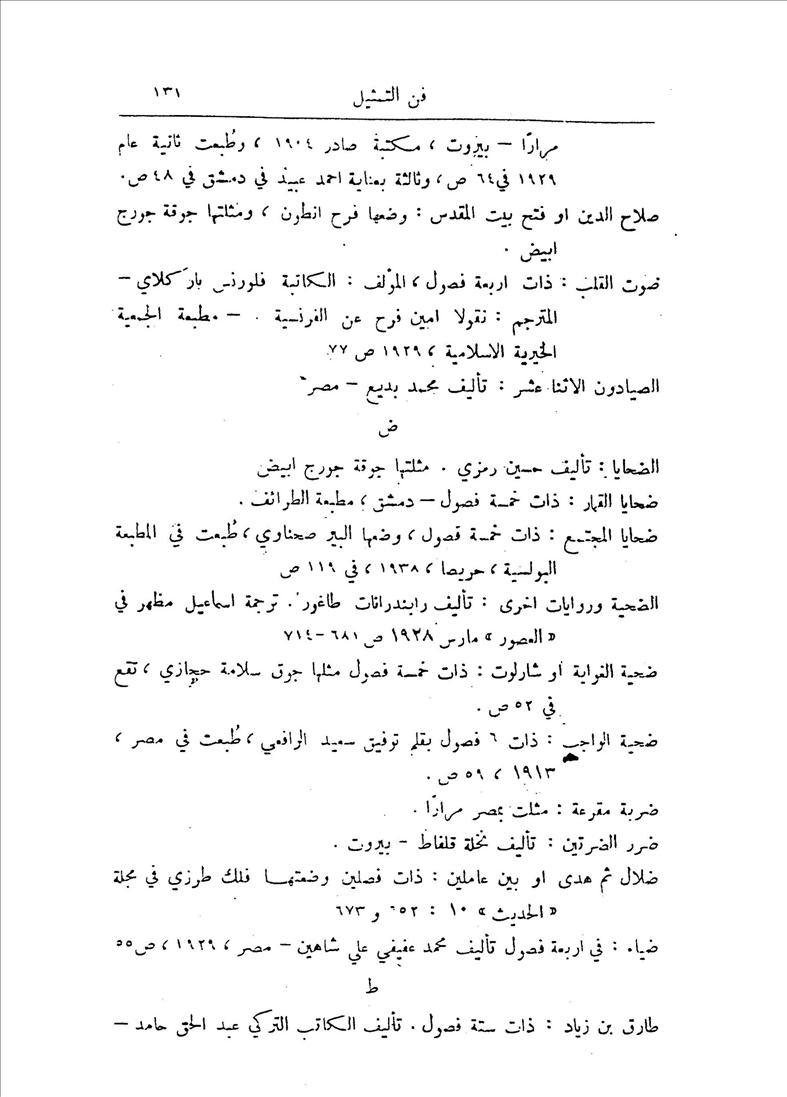 فن التمثيل ١٣١
مرارًا – بيروت ، مكتبة صادر ١٩٠٤ ، وطُبعت ثانية عام
١٩٢٩ في ٦٤ ص ، وثالثة بعناية احمد عبيد في دمشق في ٤٨ ص.
صلاح الدين او فتح بيت المقدس : وضعها فرح انطون ، ومثلتها جوقة جورج
ابيض .
صوت القلب : ذات اربعة فصول ، المؤلف : الكاتبة فلورنس باركلاي –
المترجم : نقولا امين فرح عن الفرنسية . – مطبعة الجمعية
الخيرية الاسلامية ، ١٩٢٩ ص ٧٧.
الصيادون الاثنا عشر : تأليف محمد بديع – مصر
ض
الضحايا : تأليف حسين رمزي . مثلتها جوقة جورج ابيض
ضحايا القمار : ذات خمسة فصول – دمشق ، مطبعة الطرائف .
ضحايا المجتمع : ذات خمسة فصول ، وضعها البير صحناوي ، طُبعت في المطبعة
البولسية ، حريصا ، ١٩٣٨ ، في ١١٩ ص
الضحية وروايات اخرى : تأليف رابندرانات طاغور . ترجمة اسماعيل مظهر في
« العصور » مارس ١٩٢٨ ص ٦٨١–٧١٤
ضحية الغواية او شارلوت : ذات خمسة فصول مثلها جوق سلامة حجازي ، تقع
في ٥٢ ص .
ضحية الواجب : ذات ٦ فصول بقلم توفيق سعيد الرافعي ، طُبعت في مصر ،
١٩١٣ ، ٥٩ ص .
ضربة مقرعة : مثلت بمصر مرارًا .
ضرر الضرتين : تأليف نخلة قلفاط – بيروت .
ضلال ثم هدى او بين عاملين : ذات فصلين وضعتهـا فلك طرزي في مجلة
« الحديث » ١٠ : ٦٥٢ و ٦٧٣
ضياء : في اربعة فصول تأليف محمد عفيفي علي شاهين – مصر ، ١٩٢٩ ، ص ٥٥
ط
طارق بن زياد : ذات ستة فصول . تأليف الكاتب التركي عبد الحق حامد –